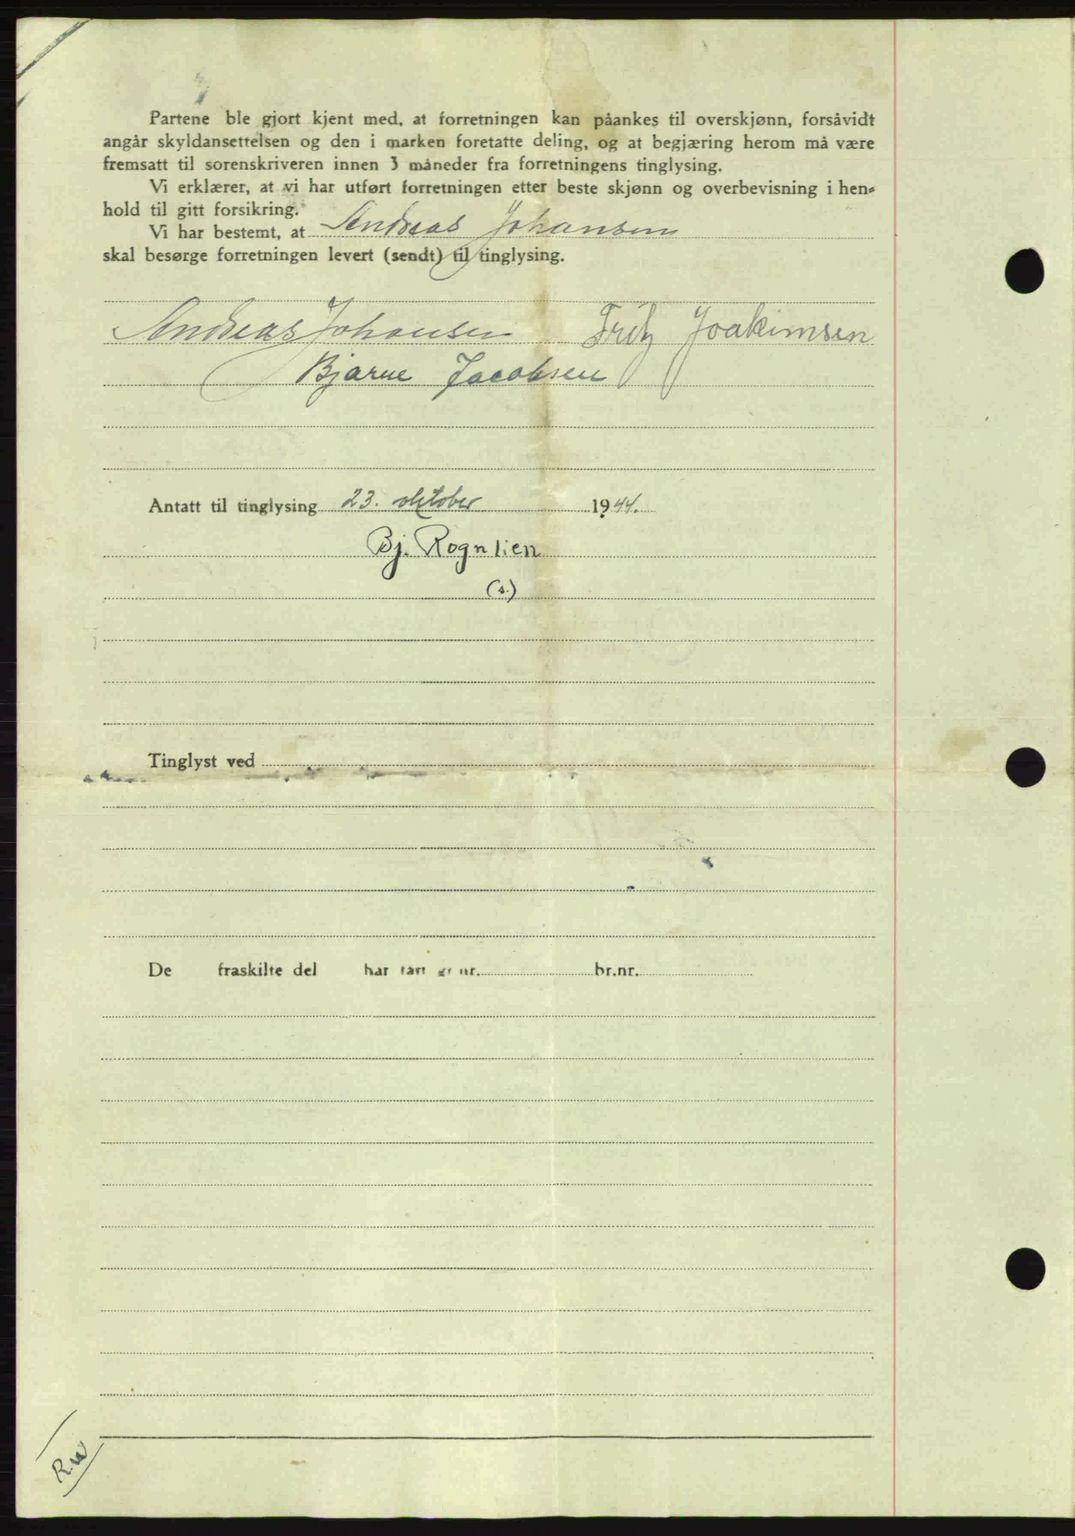 Partene ble gjort kjent med, at forretningen kan påankes til overskjønn, forsåvidt
angår skyldansettelsen og den i marken foretatte deling, og at begjæring herom må være
fremsatt til sorenskriveren innen 3 måneder fra forretningens tinglysing.
Vi erklærer, at vi har utført forretningen etter beste skjønn og overbevisning i hen-
hold til gitt forsikring.
Vi har bestemt, at Andreas Johansen
skal besørge forretningen levert (sendt) til tinglysing.
Andreas Johansen Fritz Joakimsen
Bjarne Jacobsen
Antatt til tinglysing 23. oktober 1944.
Bj. Rognlien
(s.)
Tinglyst ved
De fraskilte del har fått gr.nr. br.nr.